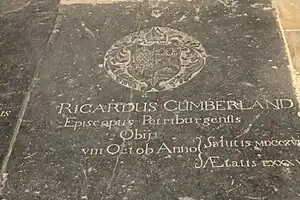 RICARDUS CUMBERLAND
Episcopus Petriburgensis
Obijt
VIII Octob Anno Salutis MDCCXVI
Ætatis LXXX
IS